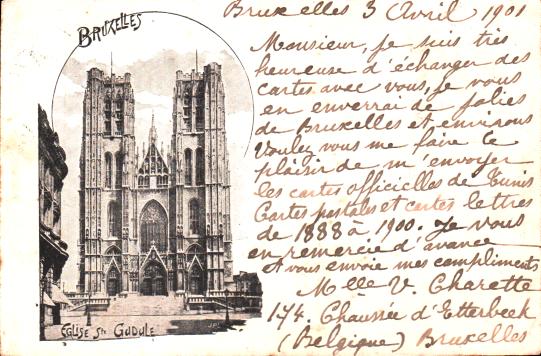 BRUXELLES
Bruxelles 3 Avril 1901
Monsieur, je suis très
heureuse d'échanger des
cartes avec vous, je vous
en enverrai de jolies
de Bruxelles et environs
Voulez vous me faire le
plaisir de m'envoyer
les cartes officielles de Tunis
Cartes postales et cartes lettres
de 1888 à 1900. Je vous
en remercie d'avance
et vous envoie mes compliments
Mlle V. Charette
174. Chaussée d'Etterbeek
(Belgique) Bruxelles
EGLISE Ste GUDULE